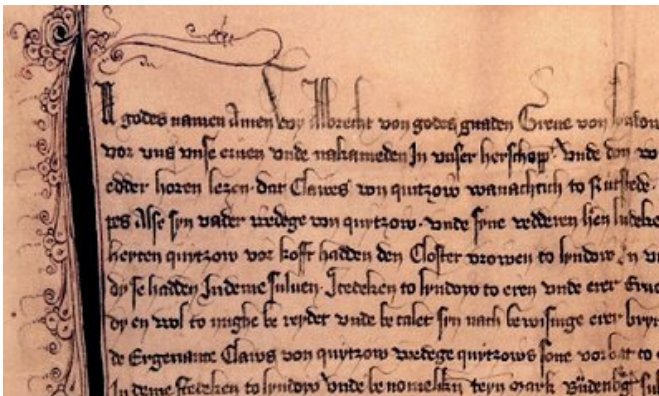 N godes namen Amen wy Albrecht von godes gnaden Greue von lyndow
vor vns vnse eruen vnde nakameden In vnser herschopp vnde don
edder horen lezen dat Clawes von quitzow wanachtich to Rutstede
Alse syn vader wedege von quytzow vnde syne vedderen hen
heyten quitzow vor kofft hadden den Closter vrowen to lyndow
dy se hadden Indeme suluen Stedeken to lyndow to eren vnde erer
dy en wol to nughe be reydet vnde be talet syn nach be wisinge erer
de Ergenante Claws von quytzow wedege quitzows sone vorbat to
In deme stedeken to lyndow vnde be nomeliken teyn mark